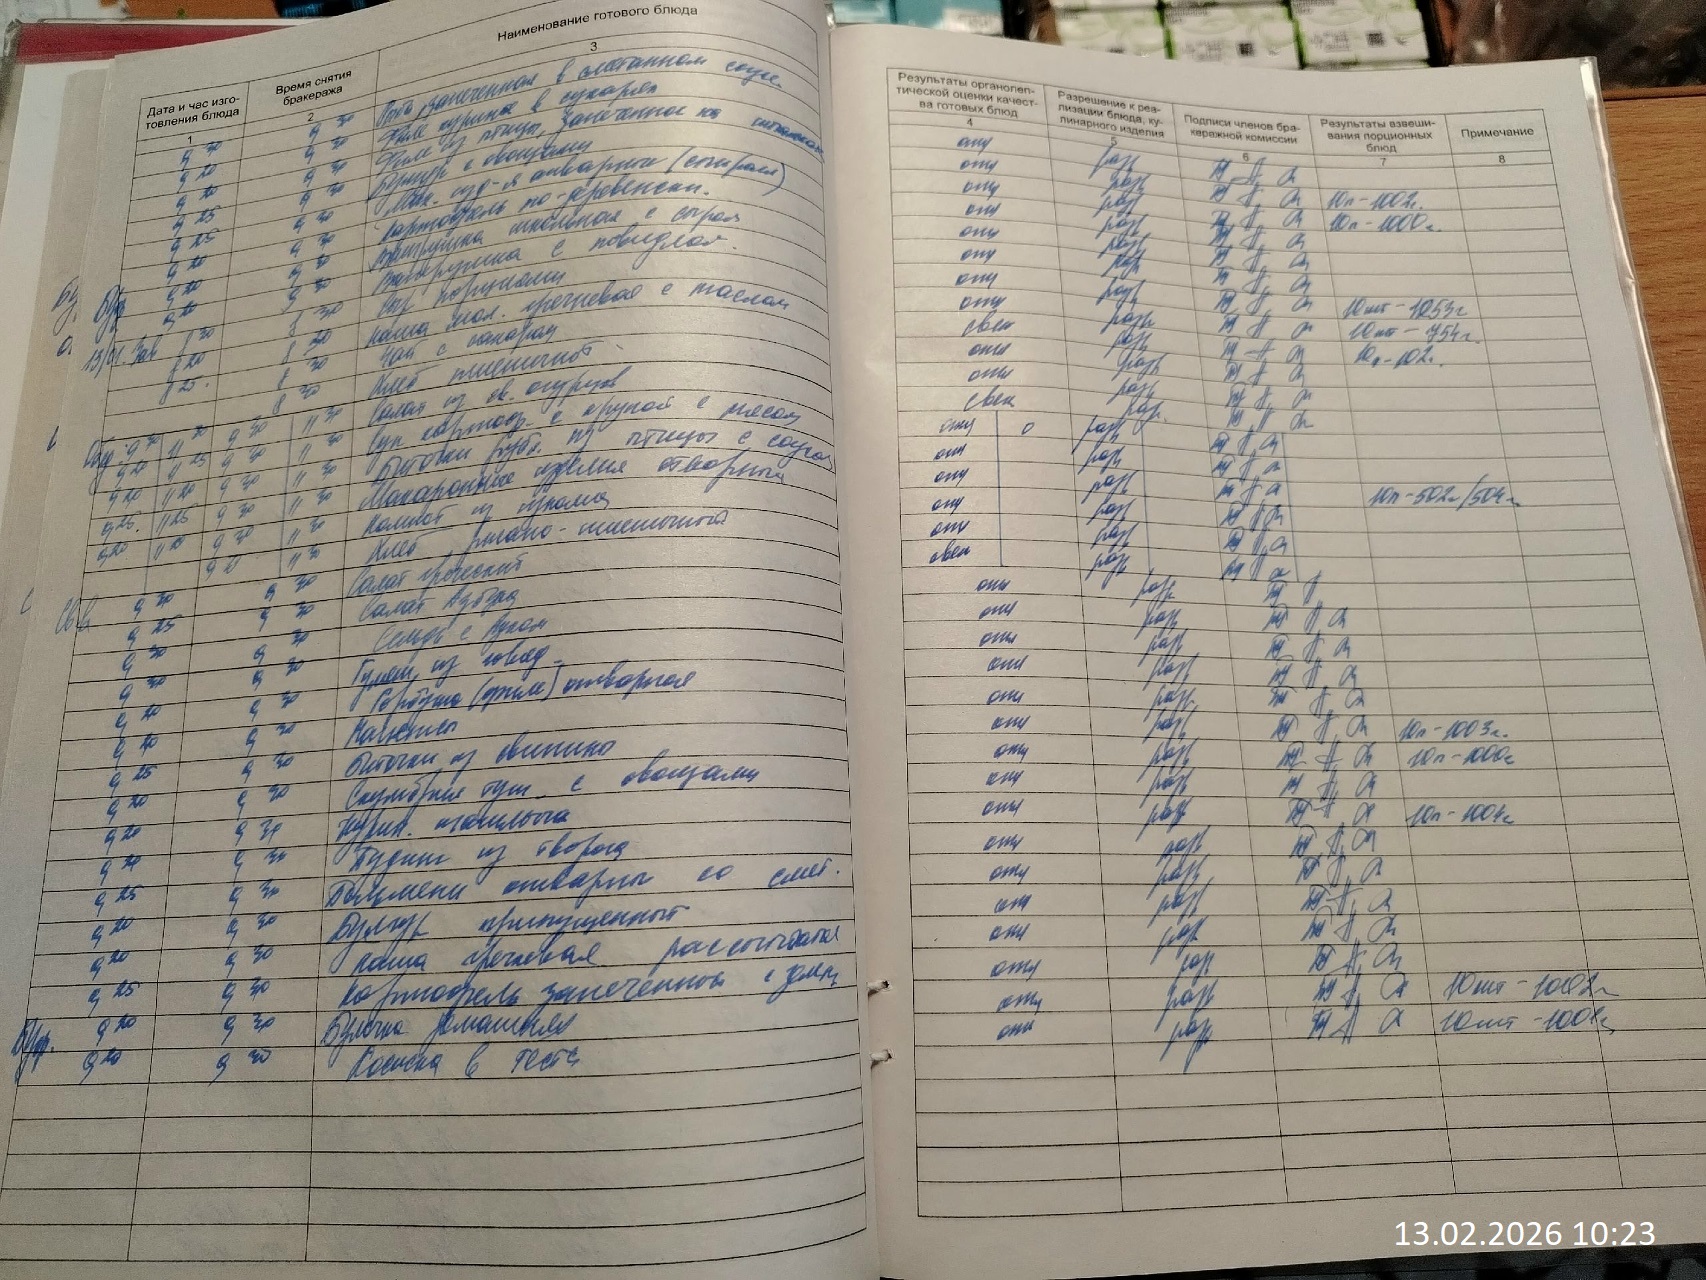 Дата и час изго-
товления блюда
Время снятия
бракеража
Наименование готового блюда
1
2
3
9 30 9 30 запеченная в сметанном соусе
9 20 9 30 Филе куриное в сухарях
9 20 9 30 Филе из птицы, запеченное
9 25 9 30 с овощами
9 25 9 30 Мак. изд-я отварные
9 20 9 30 Картофель по-деревенски.
Бур 9 20 9 30 школьная с сыром
9 20 9 30 с повидлом.
Зав 8 30 8 30 порциями
8 20 8 30 Каша мол. гречневая с маслом
8 25. 8 30 Чай с сахаром
8 30 Хлеб пшеничный
Обед 9 30 11 30 9 30 11 30 Салат из св. огурцов
9 20 11 25 9 30 11 30 Суп картоф. с крупой с мясом
9 20 11 20 9 30 11 30 Биточки рубл. из птицы с соусом
9 25. 11 25 9 30 11 30 Макаронные изделия отварные
9 20 9 30 11 30 Компот из изюма
11 30 Хлеб ржано-пшеничный
9 30 9 30 Салат греческий
9 25 9 30 Салат
9 30 9 30 Сельдь с луком
9 30 9 30 Гуляш из говяд.
9 20 9 30 Горбуша (филе) отварная
9 20 9 30 Наггетсы
9 25 9 30 Биточки из свинины
9 20 9 30 Скумбрия туш. с овощами
9 20 9 30
9 20 9 30 Пудинг из творога
9 25 9 30 Пельмени отварные со смет.
9 20 9 30 Булгур припущенный
9 20 9 30 Каша гречневая рассыпчатая
9 25 9 30 Картофель запеченный с
Бур. 9 20 9 30 Булочка домашняя
9 20 9 30 Сосиска в тесте
Результаты органолеп-
тической оценки качест-
ва готовых блюд
Разрешение к реа-
лизации блюда, ку-
линарного изделия
Подписи членов бра-
керажной комиссии
Результаты взвеши-
вания порционных
блюд
Примечание
4
5
6
7
8
отл разр
отл разр
отл разр 10п-1002г.
отл разр 10п-1000г.
отл разр
отл разр
отл разр
отл разр 10шт-1053г
свеж разр 10шт-754г.
отл разр 10п-102г.
отл разр
свеж разр.
отл о разр
отл разр
отл разр
отл разр 10п-502г/504г
отл разр
свеж разр
отл разр
отл разр
отл разр
отл разр
отл разр
отл разр 10п-1003г.
отл разр 10п-1000г
отл разр
отл разр 10п-1004г
отл разр
отл разр
отл разр
отл разр
отл разр
отл разр 10шт-1002г
отл разр 10шт-1001г
13.02.2026 10:23